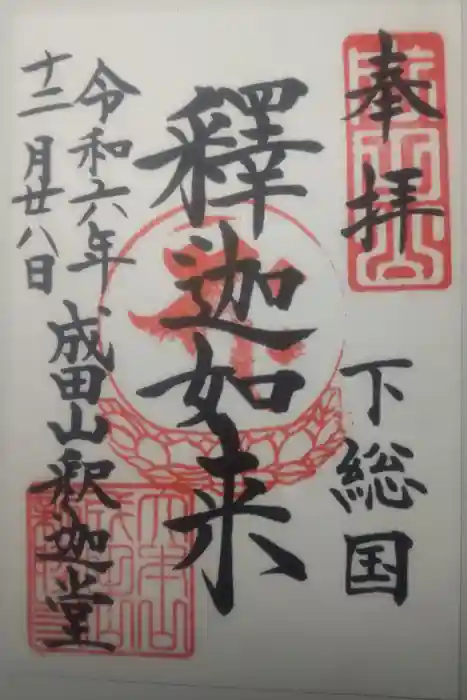 奉拝
下総国
釋迦如来
令和六年
十二月廿八日
成田山釈迦堂